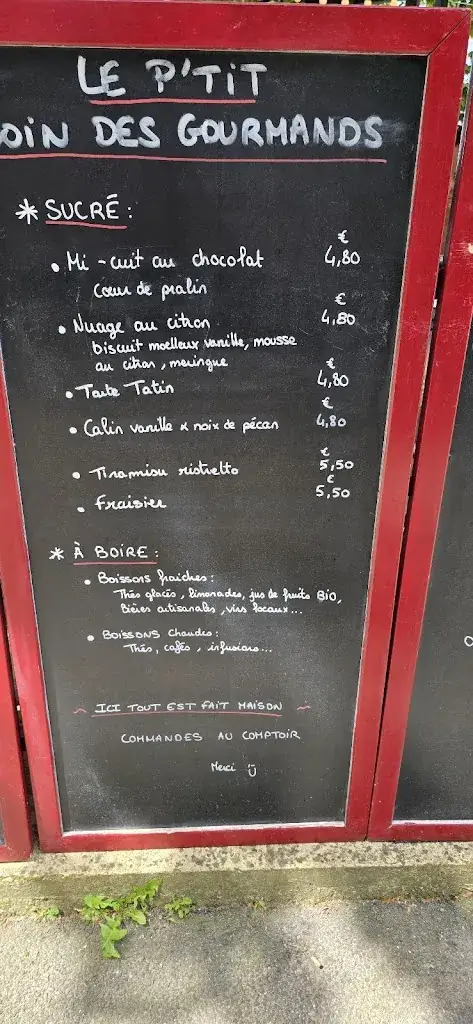 LE P'TIT
OIN DES GOURMANDS
* SUCRÉ :
• Mi-cuit au chocolat € 4,80
Cœur de pralin
• Nuage au citron € 4,80
biscuit moelleux vanille, mousse
au citron, meringue
• Tarte Tatin € 4,80
• Calin vanille & noix de pécan € 4,80
• Tiramisu ristretto € 5,50
• Fraisier € 5,50
* À BOIRE :
• Boissons fraiches :
Thés glacés, limonades, jus de fruits BIO,
Bières artisanales, vins locaux...
• BOISSONS Chaudes :
Thés, cafés, infusions...
~ ICI TOUT EST FAIT MAISON ~
COMMANDES AU COMPTOIR
Merci ü